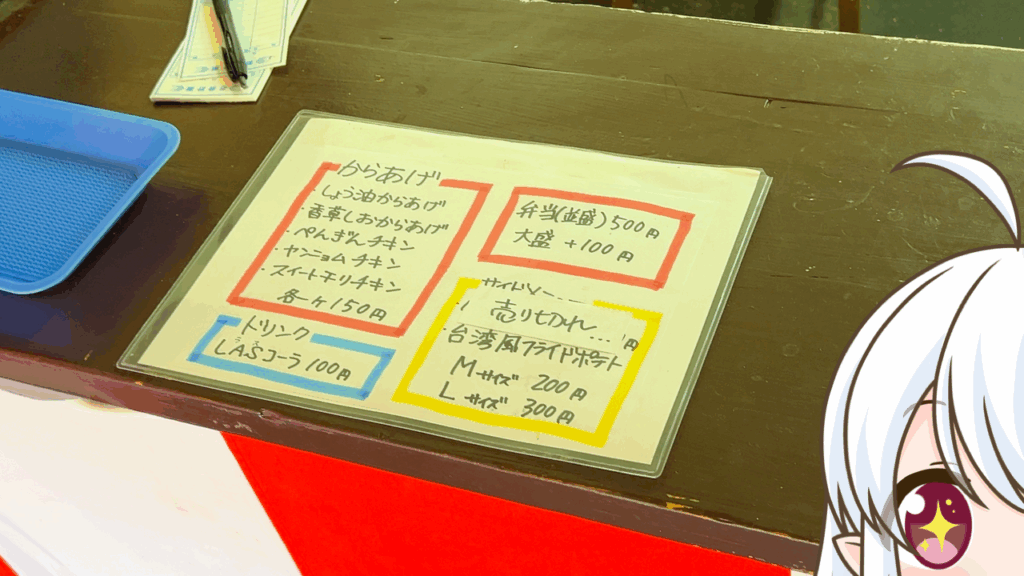 からあげ
・しょう油からあげ
・香草しおからあげ
・ぺんぎんチキン
・ヤンニョムチキン
・スイートチリチキン
各一ヶ150円
ドリンク
LASコーラ 100円
弁当(並盛)500円
大盛 +100円
サイドメ
売り切れ...
円
・台湾風フライドポテト
Mサイズ 200円
Lサイズ 300円